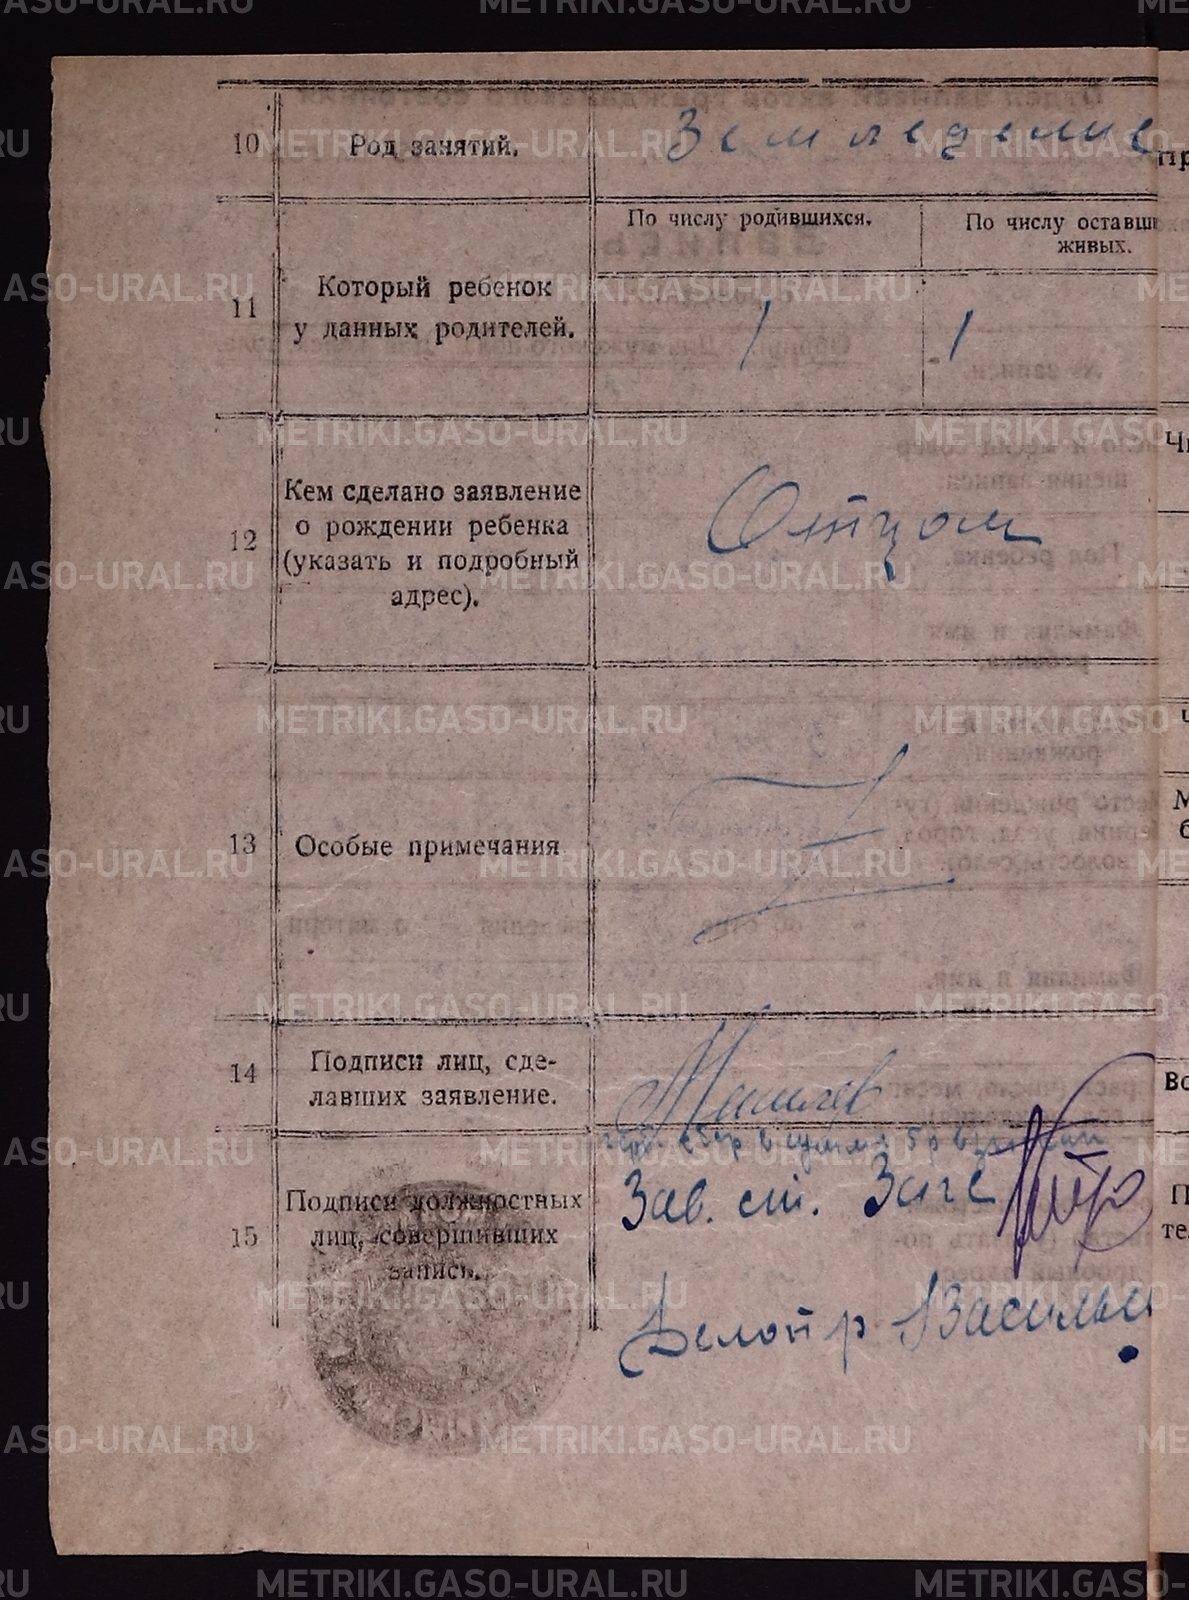 10 Род занятий. Земледелие
11 Который ребенок
у данных родителей.
По числу родившихся.
1
По числу оставш
живых.
1
12 Кем сделано заявление
о рождении ребенка
(указать и подробный
адрес).
Отцом
13 Особые примечания
14 Подписи лиц, сде-
лавших заявление.
15 Подписи должностных
лиц, совершивших
запись.
Зав. ст. Загс
Делопр Васильи
METRIKI.GASO-URAL.RU